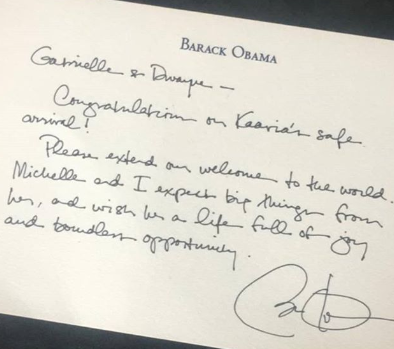 BARACK OBAMA
Gabrielle & Dwayne —
Congratulations on Kaavia's safe
arrival!
Please extend our welcome to the world.
Michelle and I expect big things from
her, and wish her a life full of joy
and boundless opportunity.